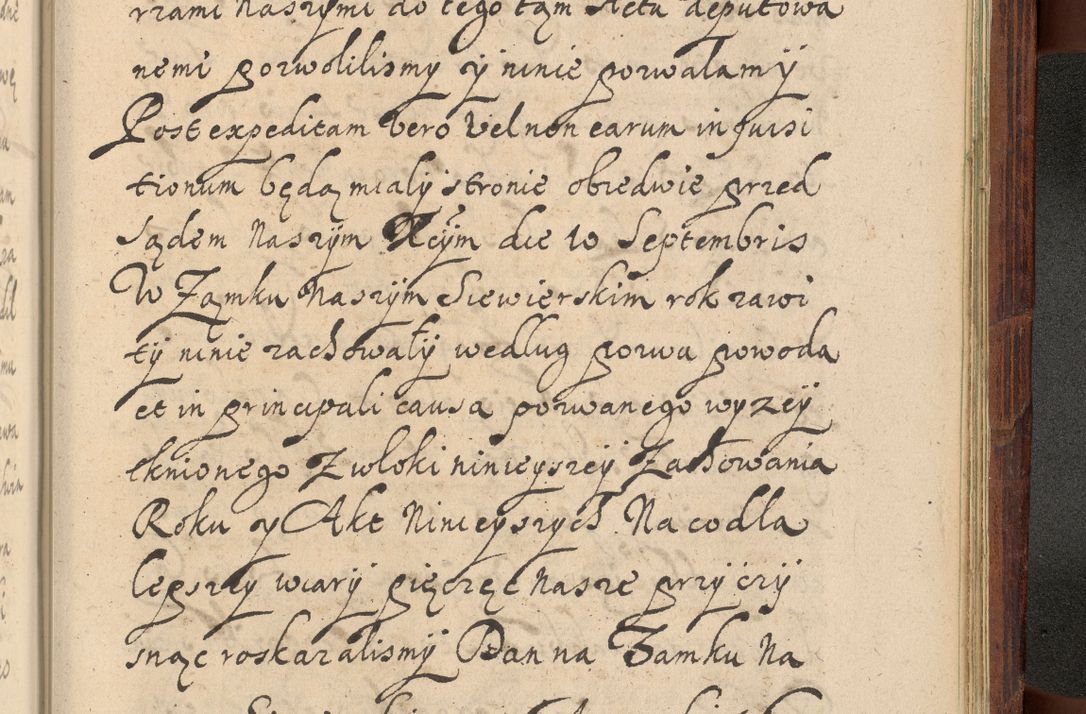 rzami naszymi do tego tam Actu deputowa
nemi pozwolilismy y ninie pozwalamy
Post expeditam vero vel non earum inquisi
tionum będą mialy stronie obiedwie przed
Sądem naszym die 10 Septembris
W Zamku naszym Siewierskim rok zawi
ty ninie zachowały według pozwa powoda
et in principali causa pozwanego wyzey
tknionego Zwłoki ninieyszey Zachowania
Roku y Akt Ninieyszych Na co dla
lepszey wiary pięczęc nasze przyczy
snąc roskazalismy Dan na Zamku Na